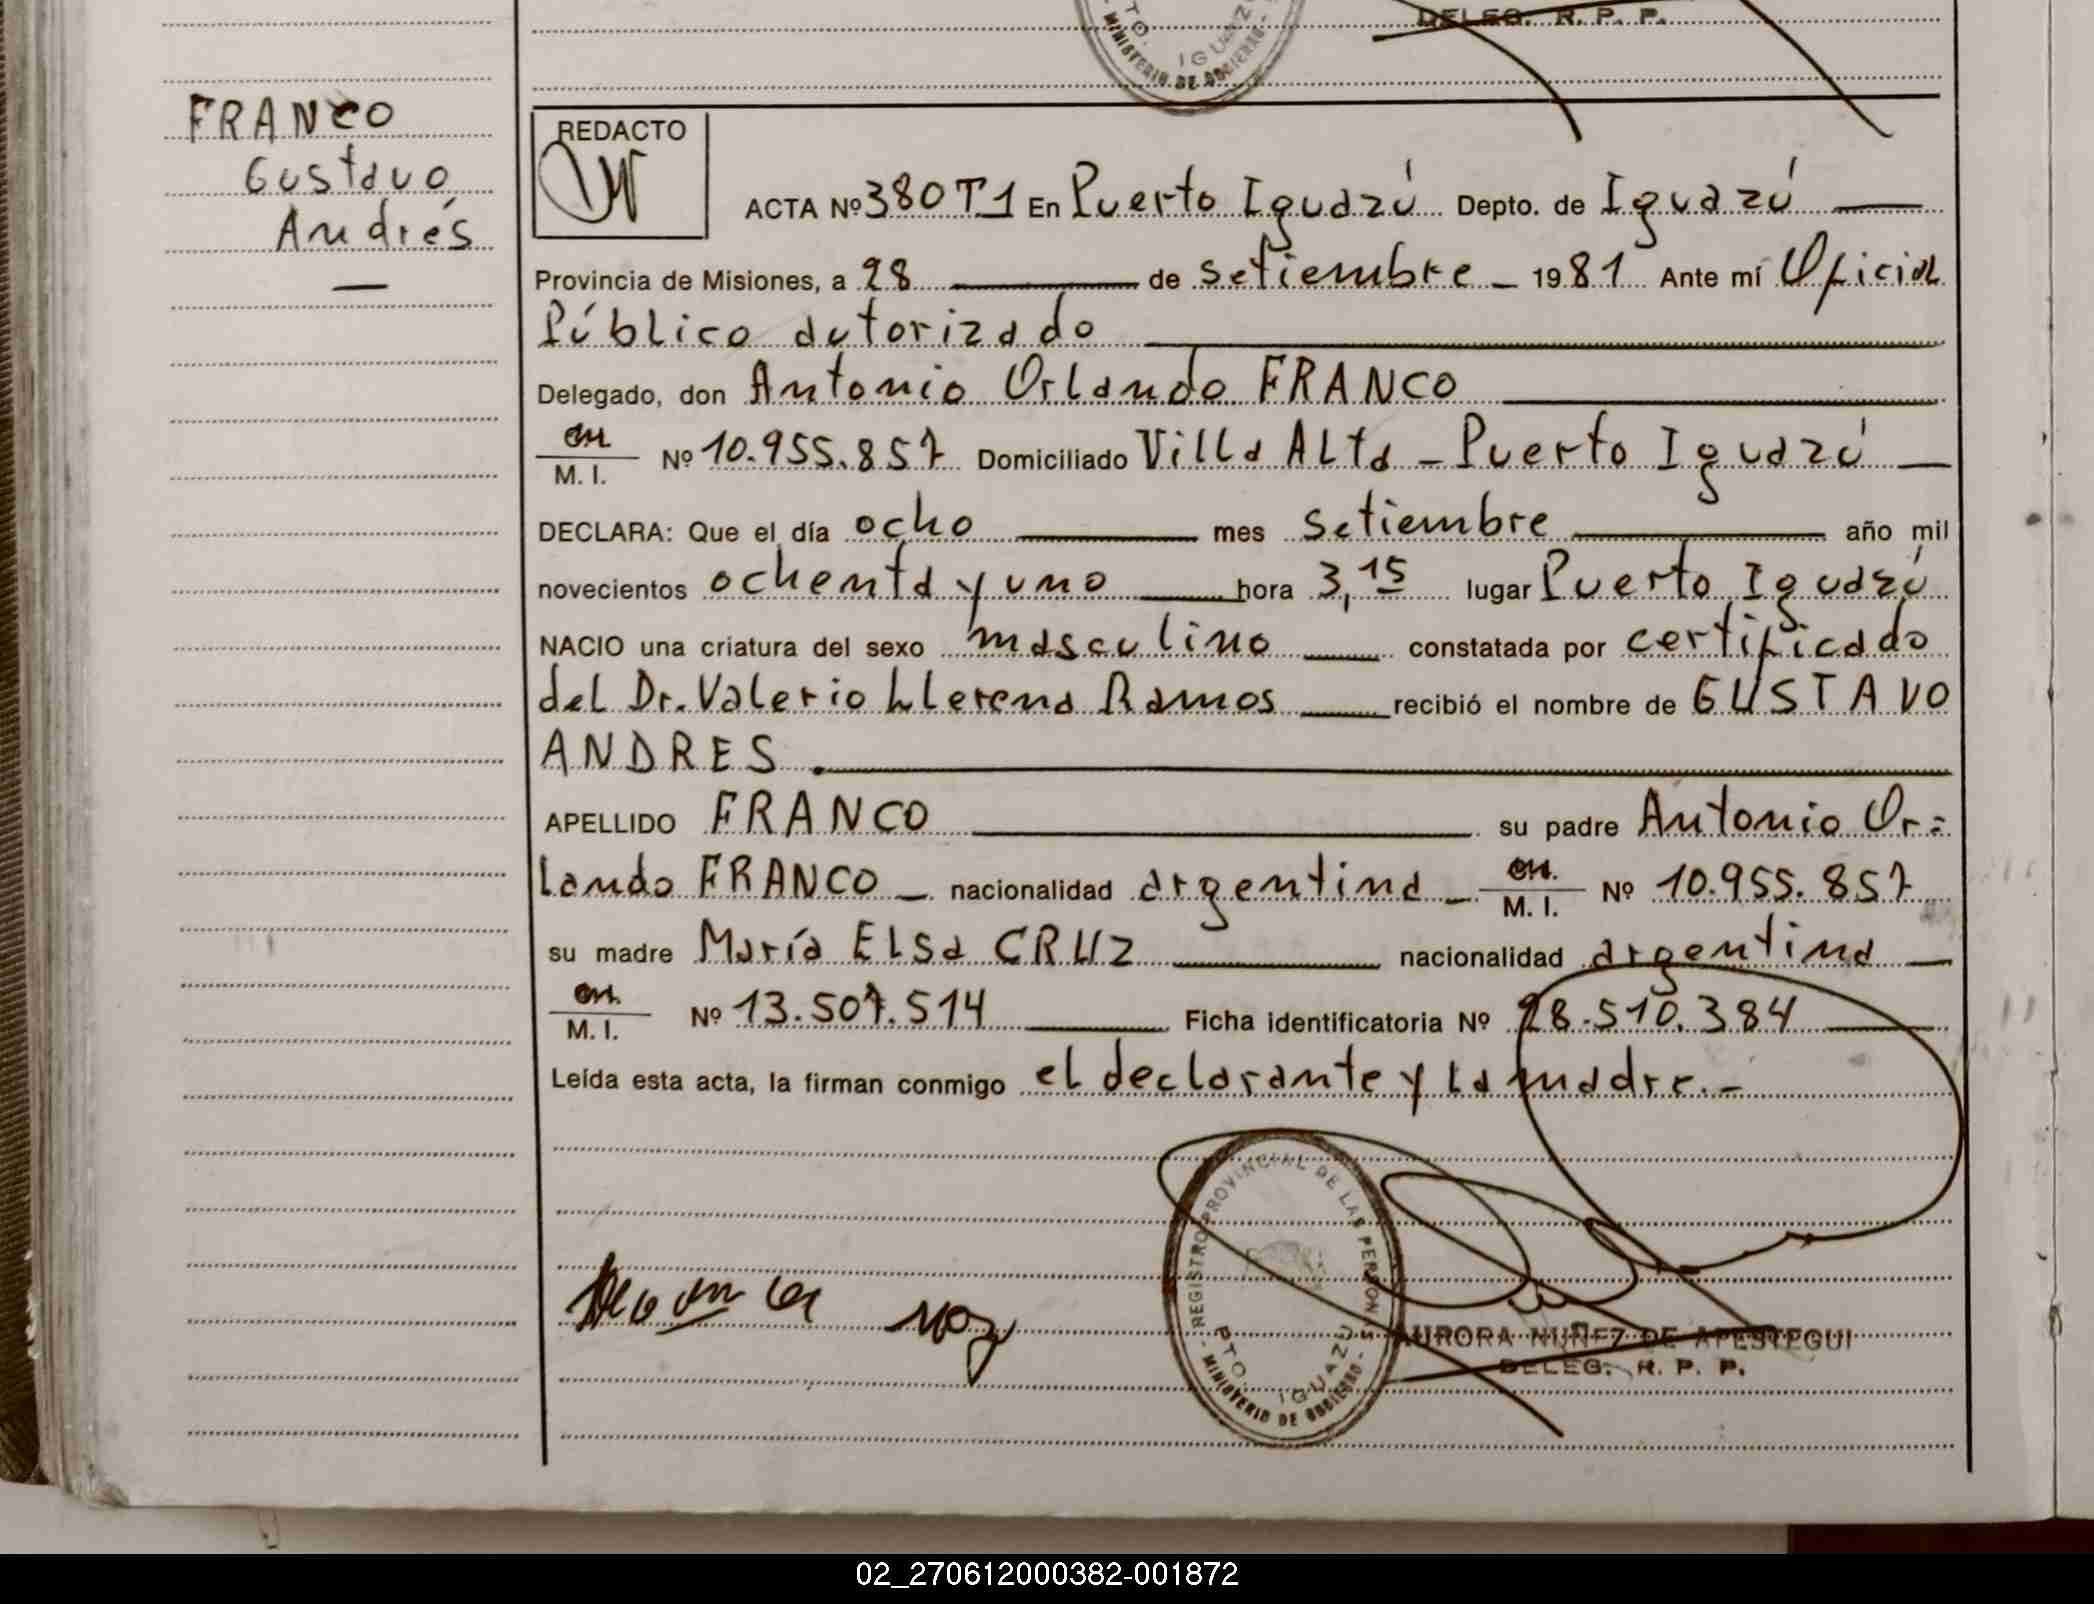 DELEG. R. P. P.
PTO. IGUAZU
MINISTERIO DE GOBIERNO
FRANCO
Gustavo
Andrés
REDACTO
ACTA Nº 380 T1 En Puerto Iguazú Depto. de Iguazú
Provincia de Misiones, a 28 de setiembre 1981 Ante mí Oficial
Público autorizado
Delegado, don Antonio Orlando FRANCO
M. I. Nº 10.955.857 Domiciliado Villa Alta - Puerto Iguazú
DECLARA: Que el día ocho mes setiembre año mil
novecientos ochenta y uno hora 3,15 lugar Puerto Iguazú
NACIO una criatura del sexo masculino constatada por certificado
del Dr. Valerio Llerena Ramos recibió el nombre de GUSTAVO
ANDRES.
APELLIDO FRANCO su padre Antonio Or=
lando FRANCO nacionalidad argentina M. I. Nº 10.955.857
su madre María Elsa CRUZ nacionalidad argentina
M. I. Nº 13.507.514 Ficha identificatoria Nº 28.510.384
Leída esta acta, la firman conmigo el declarante y la madre.-
REGISTRO PROVINCIAL DE LAS PERSONAS
PTO. IGUAZU
- MINISTERIO DE GOBIERNO -
AURORA NUÑEZ DE APESTEGUI
DELEG. R. P. P.
02_270612000382-001872